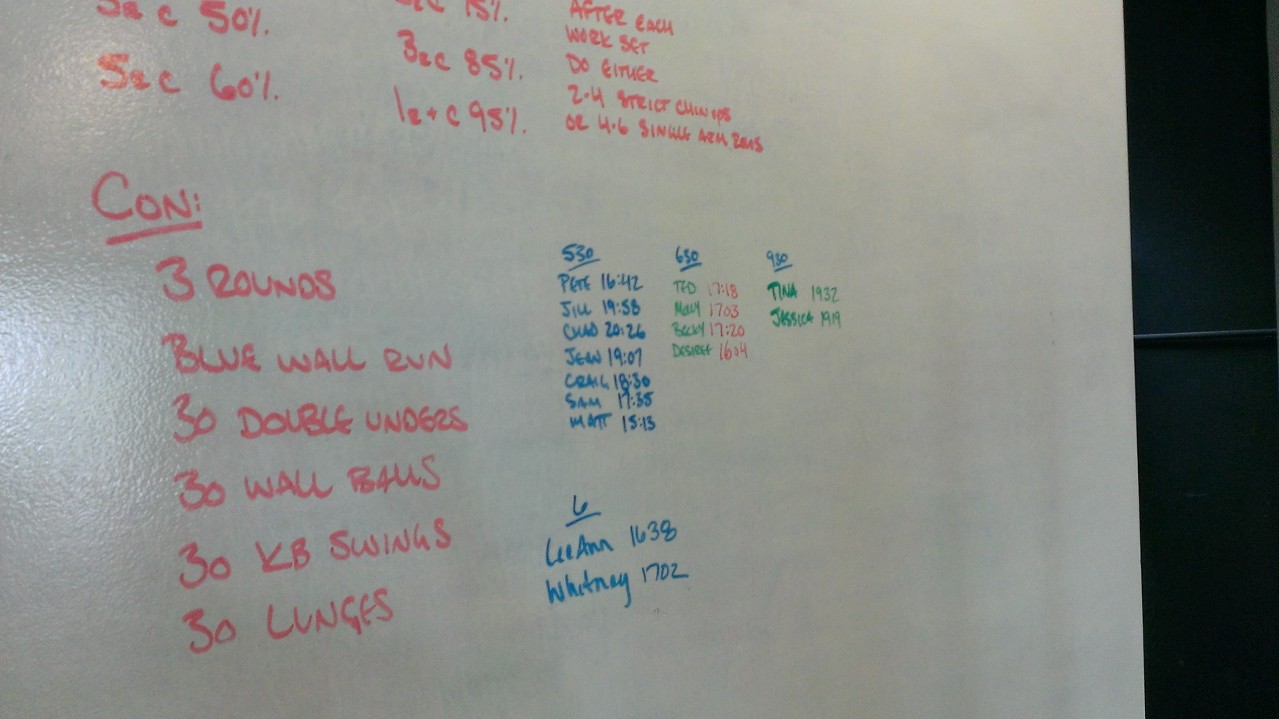 5 @ 50%.
5 @ 60%.
3 @ 85%.
1 + @ 95%.
AFTER EACH
WORK SET
DO EITHER
2-4 STRICT CHINUPS
OR 4-6 SINGLE ARM ROWS
CON:
3 ROUNDS
BLUE WALL RUN
30 DOUBLE UNDERS
30 WALL BALLS
30 KB SWINGS
30 LUNGES
530
PETE 16:42
JILL 19:58
CHAD 20:26
JEAN 19:07
CRAIG 18:30
SAM 17:35
MATT 15:13
630
TED 17:18
MOLLY 1703
BECKY 17:20
DESIREE 1604
930
TINA 1932
JESSICA 1919
6
LeeAnn 1638
Whitney 1702